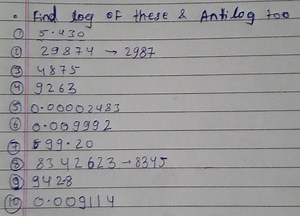 • Find log of these & Antilog too
① 5.430
② 29874 → 2987
③ 4875
④ 9263
⑤ 0.00002483
⑥ 0.009992
⑦ 599.20
⑧ 8342623 → 8345
⑨ 9428
⑩ 0.009114